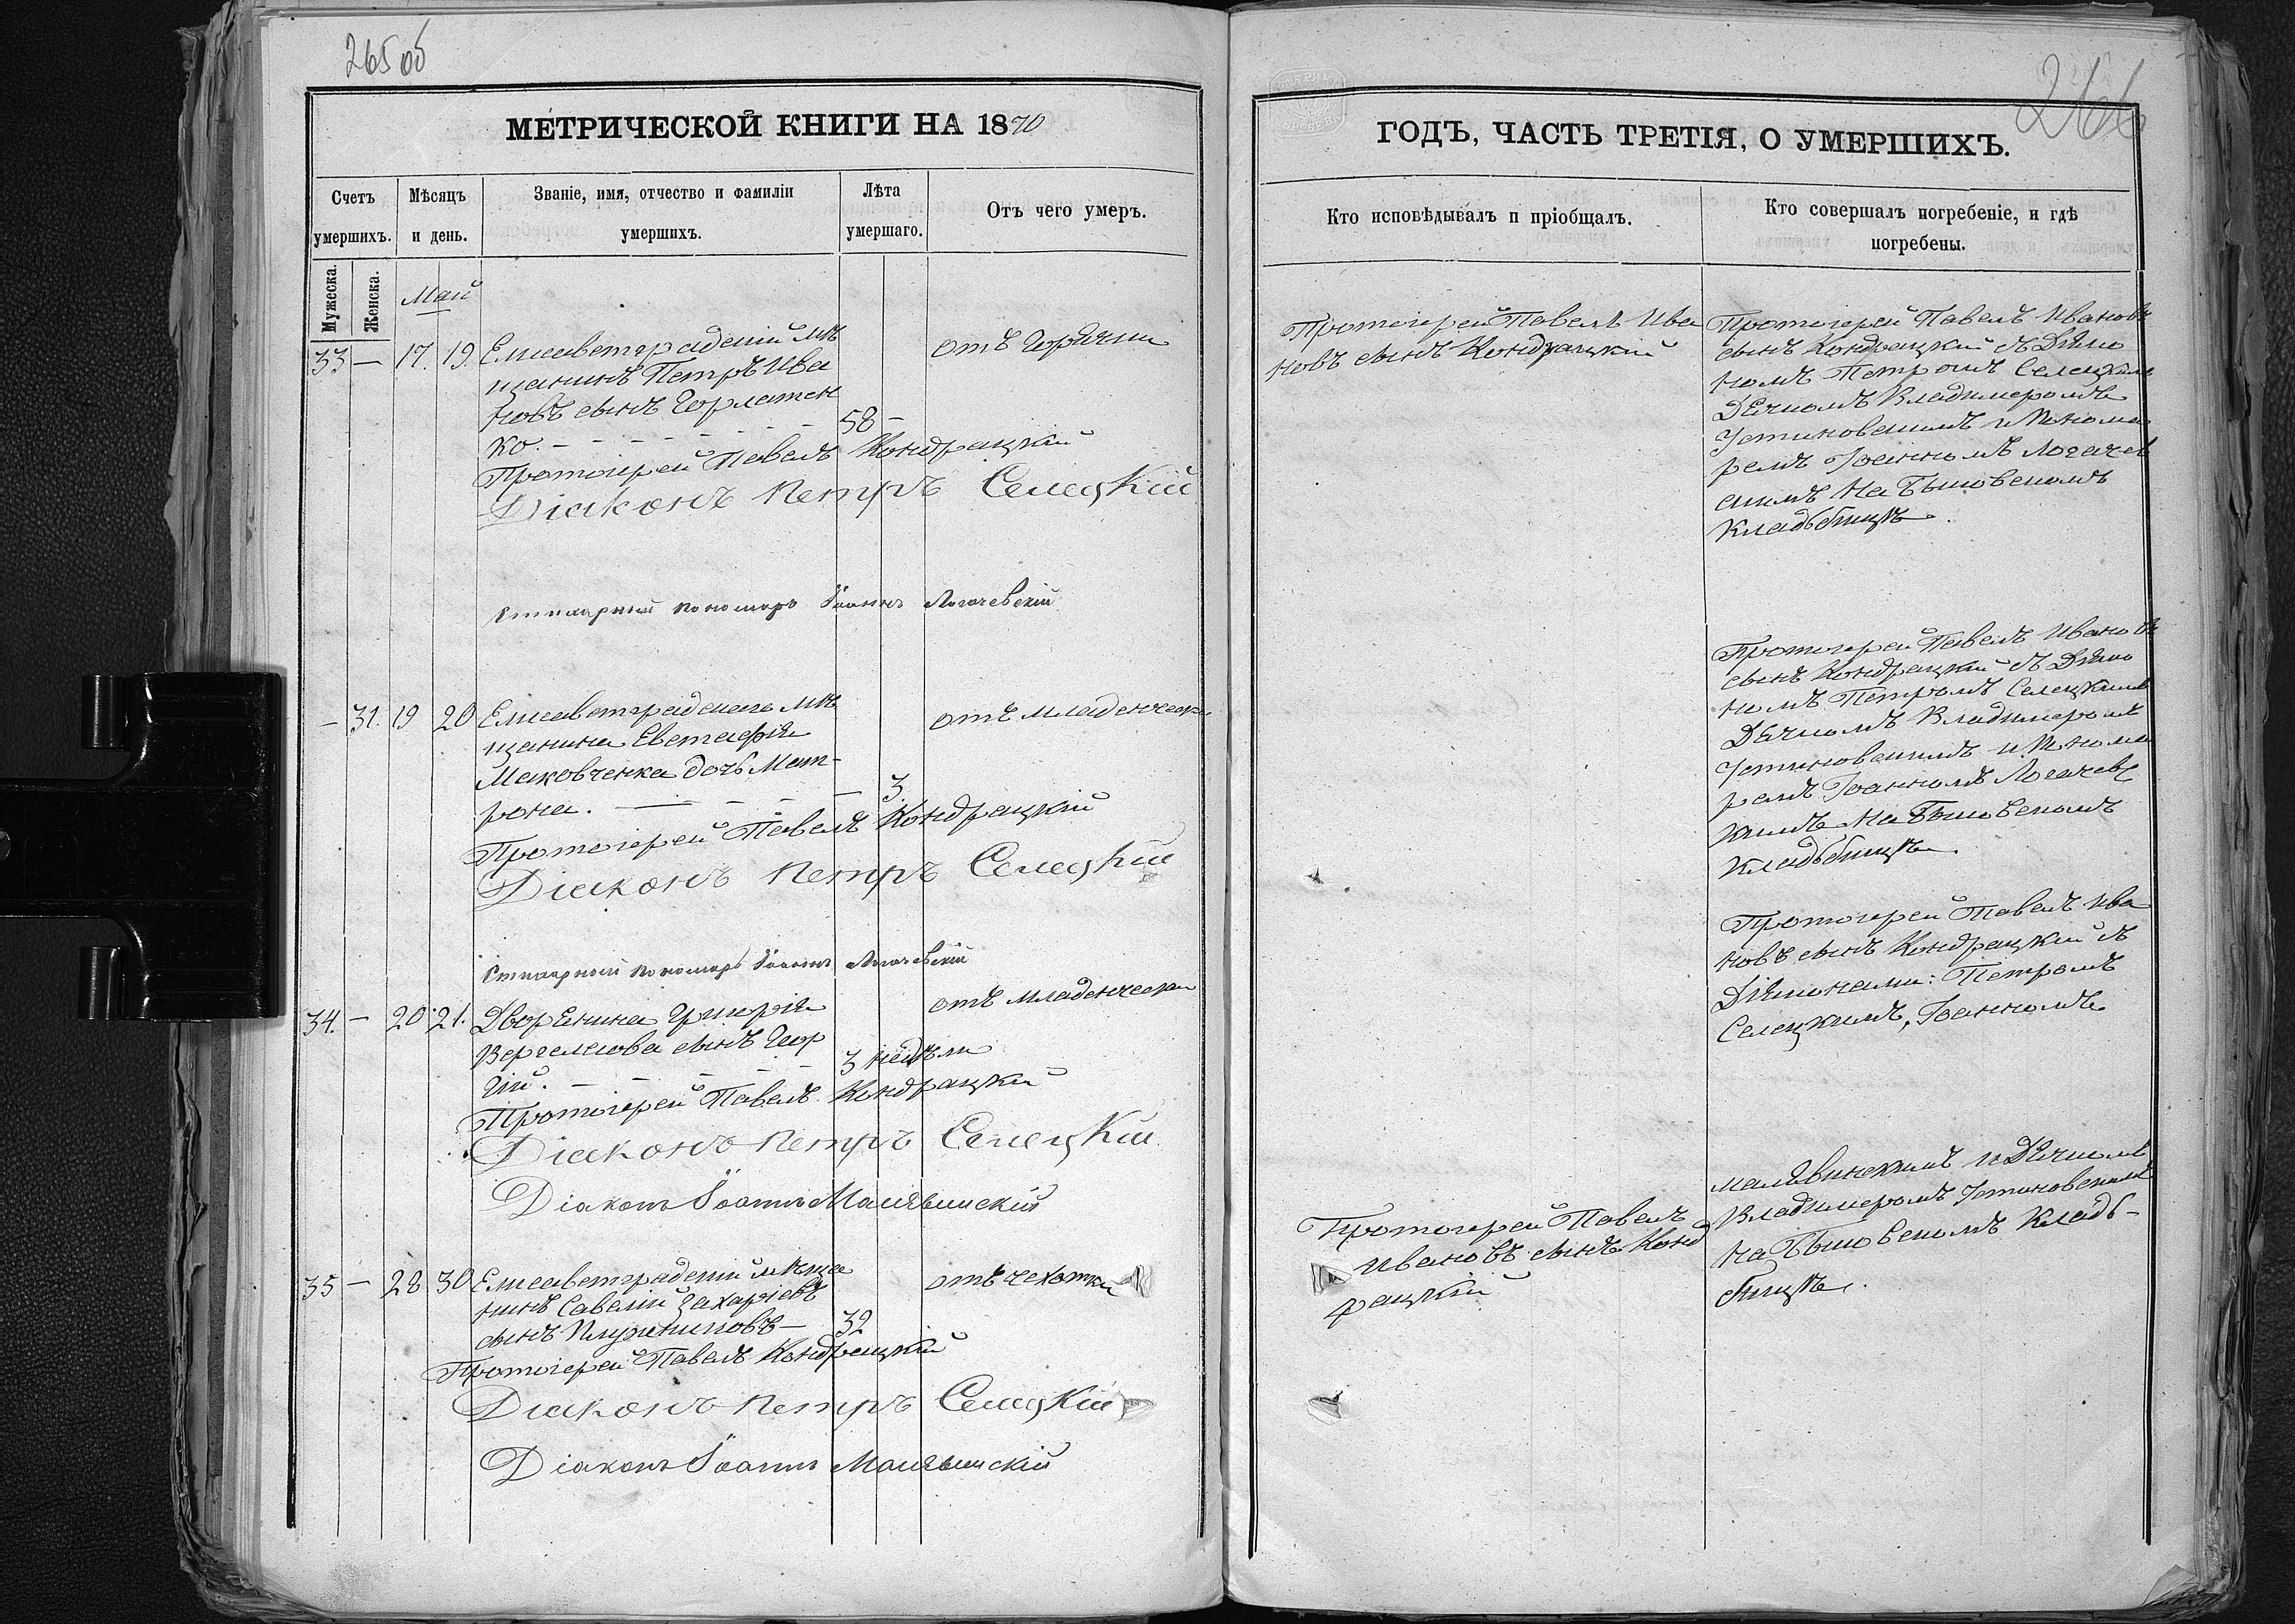 265 об
МЕТРИЧЕСКОЙ КНИГИ НА 1870
Счетъ умершихъ.
Мѣсяцъ и день.
Званіе, имя, отчество и фамиліи умершихъ.
Лѣта умершаго.
Отъ чего умеръ.
Мужеска.
Женска.
Май
33 — 17. 19. Елисаветградскій мѣ
щанинъ Петръ Ива
новъ сынъ Горлатен
ко. — 58 —
отъ горячки
Протоіерей Павелъ Кондрацкій
Діаконъ Петръ Селецкій
Стихарный пономарь Іоаннъ Логачевскій
— 31. 19 20 Елисаветградскаго мѣ
щанина Евстафія
Маковченка дочь Мат-
рона. — 3.
отъ младенческ
Протоіерей Павелъ Кондрацкій
Діаконъ Петръ Селецкій
Стихарный пономарь Іоаннъ Логачевскій
34. — 20 21. Дворянина Григорія
Вергелесова сынъ Геор
гій. — 3 недѣли
отъ младенческ
Протоіерей Павелъ Кондрацкій
Діаконъ Петръ Селецкій
Діаконъ Іоаннъ Малявинскій
35 — 28 30 Елисаветградскій мѣща
нинъ Савелій Захаріевъ
сынъ Плужниковъ — 32
отъ чехотки
Протоіерей Павелъ Кондрацкій
Діаконъ Петръ Селецкій
Діаконъ Іоаннъ Малявинскій
266
ГОДЪ, ЧАСТЬ ТРЕТІЯ, О УМЕРШИХЪ.
Кто исповѣдывалъ и пріобщалъ.
Кто совершалъ погребеніе, и гдѣ
погребены.
Протоіерей Павелъ Ива
новъ сынъ Кондрацкій
Протоіерей Павелъ Ивановъ
сынъ Кондрацкій съ Діяко
номъ Петромъ Селецкимъ
Дячкомъ Владимеромъ
Устиновскимъ и Понома
ремъ Іоанномъ Логачев
скимъ на Быковскомъ
Кладьбищѣ.
Протоіерей Павелъ Ивановъ
сынъ Кондрацкій съ Діяко
номъ Петромъ Селецкимъ
Дячкомъ Владимеромъ
Устиновскимъ и Понома
ремъ Іоанномъ Логачевс
кимъ на Быковскомъ
Кладьбищѣ.
Протоіерей Павелъ Ива
новъ сынъ Кондрацкій съ
Діяконами: Петромъ
Селецкимъ, Іоанномъ
Малявинскимъ и Дячкомъ
Владимеромъ Устиновскимъ
на Быковскомъ Кладь-
бищѣ.
Протоіерей Павелъ
Ивановъ сынъ Конд
рацкій